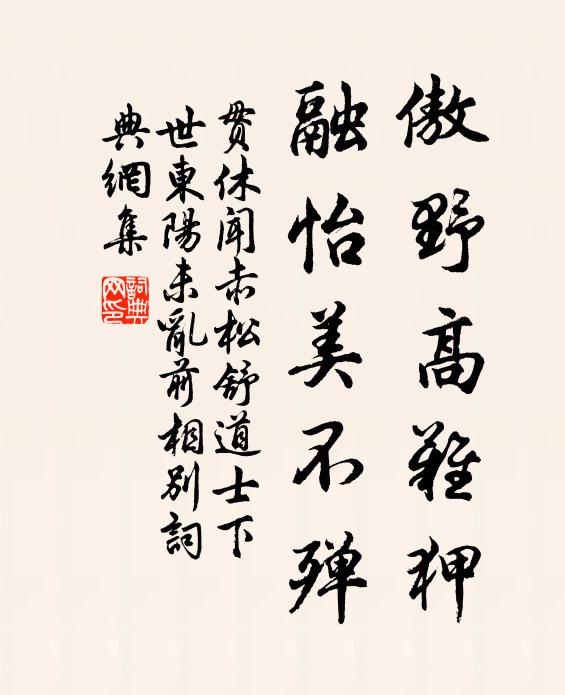 傲野高難狎
融怡美不殫
貫休聞赤松舒道士下
世東陽未亂前相別詞
典網集
詞典網印